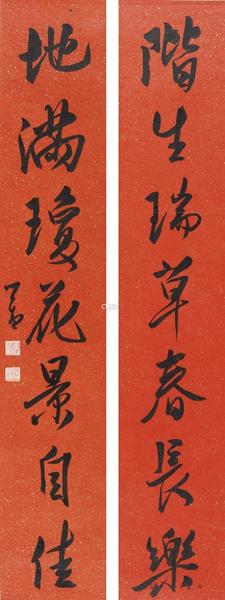 階生瑞草春長樂
地滿瓊花景自佳